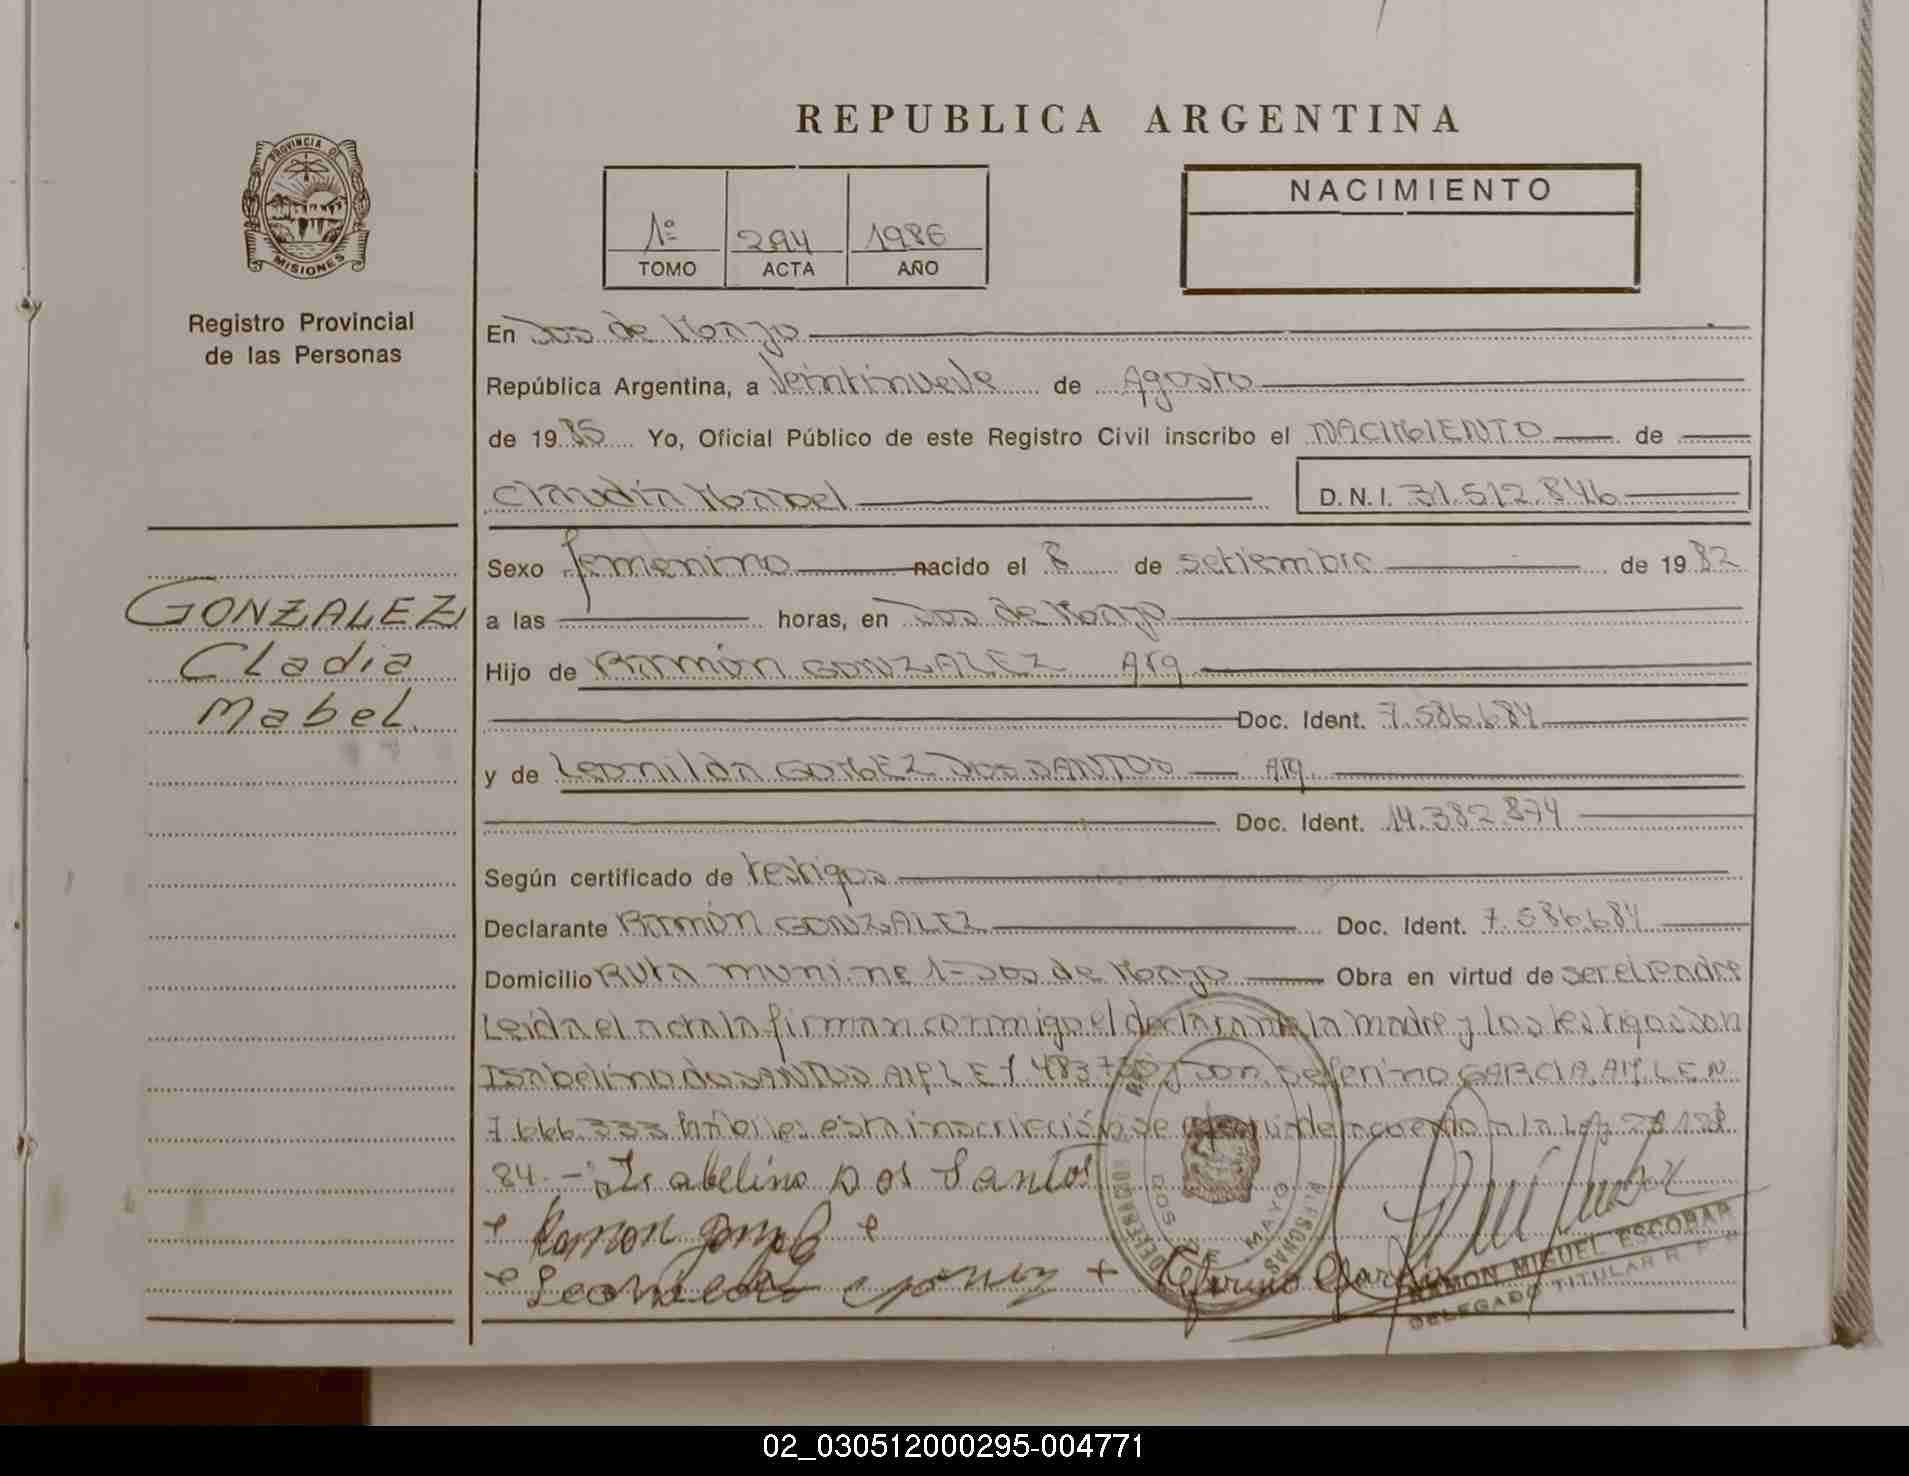 REPUBLICA ARGENTINA
PROVINCIA DE
MISIONES
Registro Provincial
de las Personas
1º 294 1986
TOMO ACTA AÑO
NACIMIENTO
En Dos de Mayo
República Argentina, a Veintinueve de Agosto
de 1985 Yo, Oficial Público de este Registro Civil inscribo el NACIMIENTO de
Claudia Mabel D.N.I. 31.512.846
GONZALEZ
Cladia
Mabel.
Sexo femenino nacido el 8 de setiembre de 1982
a las horas, en Dos de Mayo
Hijo de Ramón GONZALEZ Arg
Doc. Ident. 7.586.684
y de Leonilda GOMEZ DOS SANTOS Arg.
Doc. Ident. 14.382.874
Según certificado de testigos
Declarante Ramón GONZALEZ Doc. Ident. 7.586.684
Domicilio Ruta Domicilio de Dos de Mayo Obra en virtud de ser el Padre
Leida el acta la firman conmigo el declarante la madre y los testigos son
Isabelino dos SANTOS y Don Seferino GARCIA
7.666.333 hábiles esta inscripción se de acuerdo a la Ley
84.- Isabelino Dos Santos
Ramon
Leonilda gomez + Seferino Garcia
DOS DE MAYO
RAMON MIGUEL ESCOBAR
DELEGADO TITULAR R.P.P.
02_030512000295-004771